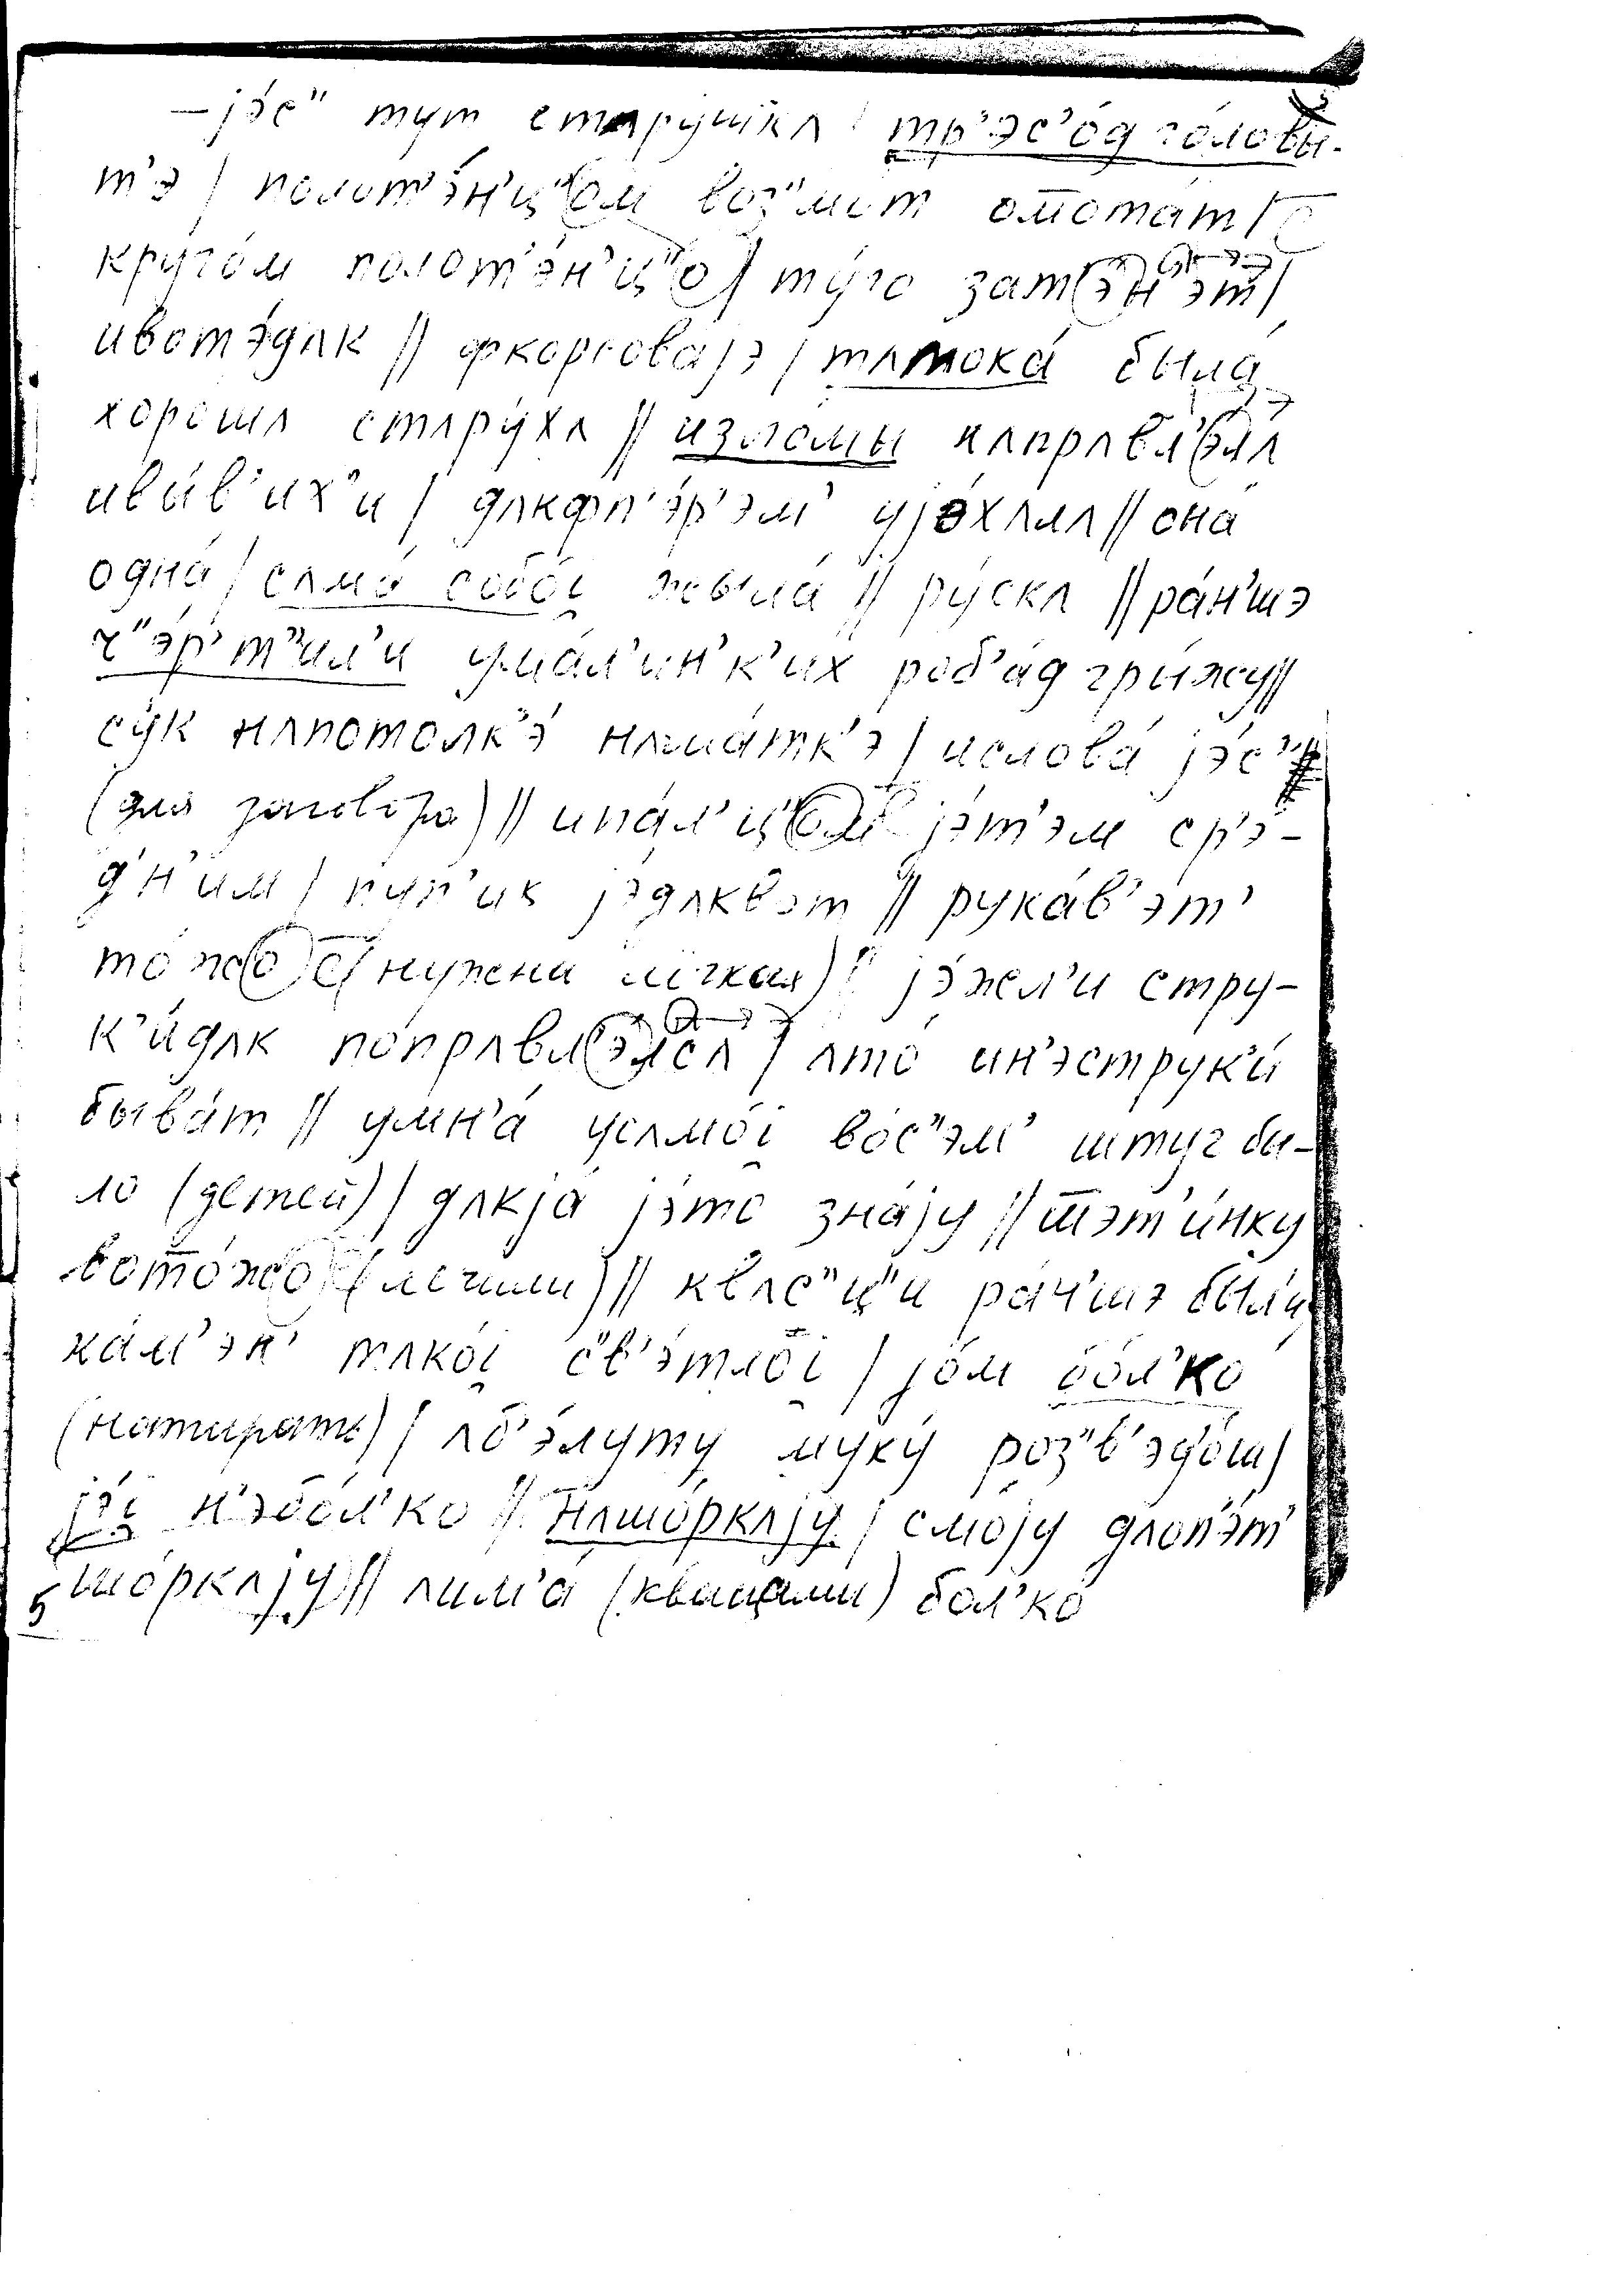 – jэ́с" тут стʌру́шкʌ / тр'эс'о́д го́ловы-
т'э / полот'э́н'ц"ом воз"мот омота́т /
круго́м полот'э́н'ц"о / ту́го зат'эн'эт /
ивотэ́дʌк // фкорговájэ / тʌтока́ была́
хорошʌ стʌру́хʌ // изломы нʌпрʌвл'э́лʌ
ивы́в'их'и / дʌкфп'эр'эм' уjэ́хʌлʌ // она́
одна́ / сʌма́ собо́i жыла́ // ру́скʌ // ра́н'шэ
ч"э́р'т"ил'и ума́л'ин'к'их роб'а́д гры́жу //
су́к нʌпотолк'э́ нʌма́тк'э / ислова́ jэ́с"
(для заговора) // ипа́л'ц"ом jэ́т'эм ср'э-
д'н'им / пуп'ик jэ́дʌквот // рука́в'эт'
то́жо (нужена лёгкая) // jэ́жел'и стру-
к'и́дʌк попрʌвл'э́лсʌ / ʌто́ ин'эструк'и́
быва́т // умн'а́ усʌмо́i во́с"эм' штуг бы-
ло (детей) / дʌкjа́ jэ́то зна́jу // тэт'и́нку
вото́жо (лечили) // квʌс"ц"и ра́н'шэ бы́л'и
ка́м'эн' тʌко́i с"в'э́тло́i / jо́м бо́л'ко
(натирать) / ʌб'э́луту муку́ роз"в'эдо́ш /
jэ́i н'эбо́л'ко // нʌшо́ркʌjу / смо́jу дʌоп'э́т'
шо́ркʌjу // ʌим'а́ (квасцами) бол'ко́
5